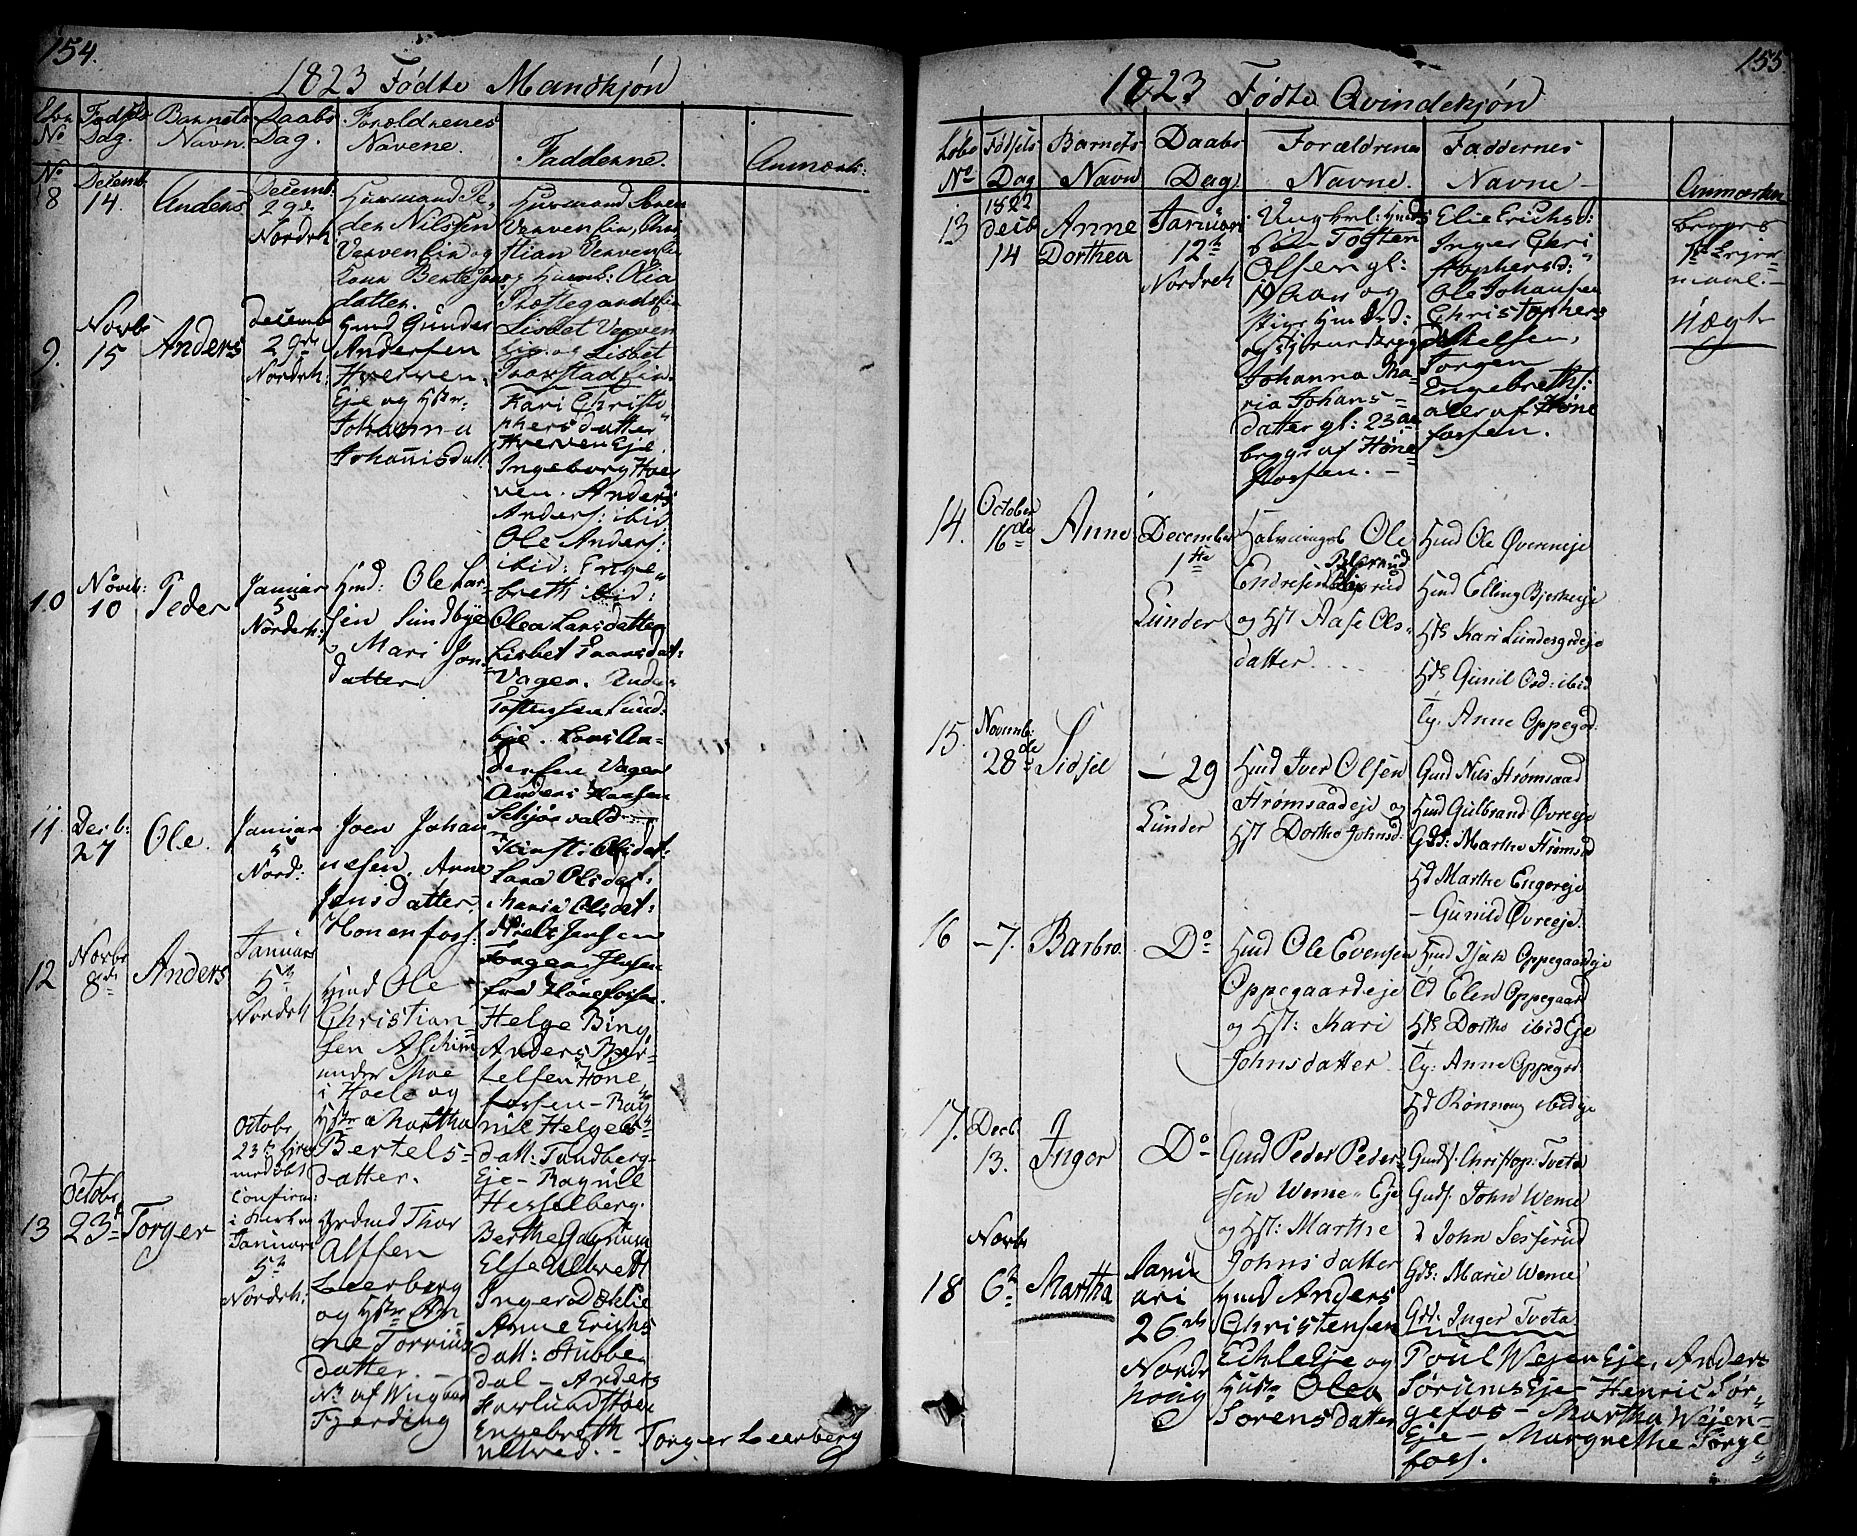 154.
1823 Fødte Mandkjøn
Løbe No
Fødsels Dag.
Barnets Navn.
Daabs Dag.
Forældrenes Navene.
Fadderne.
Anmærk:
No
8
Decemb.
14.
Anders
Decemb.
29de
Nordreh
Husmand Pe-
der Nilssen
Vervenlie og
Berthe
datter.
Husmand Søren
Vervenlie, Chri
stian Vervenlie
og Huusm: Olia
Lisbet Verven
lie og Lisbet
9.
Novb
15
Anders
Decemb
29de
Nordreh:
Hmd Gunder
Andersen
Hverven.
Eje og Hstr.
Johanna
Johannisdatt
Kari Christo
phersdatter
Hverven Eje.
Ingeborg Hver
ven. Anders
Anders: ibid
Ole Anders:
ibid: Enge
breth ibid:
10
Noveb:
10
Peder
Januar
5
Norderh:
Hmd: Ole Lar-
sen Sundbye
Mari Jon-
datter
Olea Larsdatter
Lisbet Larsdat:
Vager. Ander
Tostensen Sund-
bye. Lars An-
dersen Vager
Anders Hansen
11
Decb:
27
Ole.
Januar
5
Nord:
Joen Johan
nesen. Anne
Jensdatter.
Hønenfoss:
Kirsti Olsdat:
Lara Olsdat:
Maria Olsdat:
Niels Jensen
Jørgen Jensen
fra Hønefossen.
12
Novbr
8de
Anders
Januar
5te
Nordreh
Hmd Ole
Christian-
sen Aschim
under Moe
i Hole og
Hstr Martha
Bertels-
datter.
Helge Bing
Anders Ber-
telsen Høne
fossen - Rag
nil Helges
datt: Tandberg-
Eje - Ragnil
Hesselberg.
13
Octobr
23de
Torger
Octobr
23de hjem
med øbt
Confirm:
i Kirken
Januar
5te
Nordreh:
Thor
Alfsen
Leerberg
og Hstr An-
ne Torrius
datter. -
No af Wigaar
Fjerding
Berthe Gagnum
Else Ulvrett
Inger Døklie
Anne Erichs
datt: Stubben
dal - Anders
Engebreth
Ulvred. - Torger Leerberg
155.
1823 Fødte Qvindekjøn
Løbe No
Fødsels Dag
Barnets Navn
Daabs Dag
Forældrenes Navne.
Faddernes Navne -
Anmærken
13
1822
Decb
14
Anne
Dorthea
Januari
12te
Nordreh
Ungkarl: Hmds
søn Tosten
Olsen gl:
19 Aar og
Pige Hmdsd:
Johanna Ma-
ria Johans-
datter gl: 23 aar
begge af Høne
fossen. -
Elie Erichsd:
Inger Chri
stophersd:
Ole Johansen
Christophers
Jørgen
Engebreths:
alle af Høne
fossen.
begges
1ste Lejer-
maal. -
Uægte
14.
October
16de
Anne
December
1ste
Lunder
Halvinngs Ole
Endresen
og Hst Aase Ols-
datter.
Hmd Ole Øvereneje
Hmd Elling Bjerkeeje
Hst Kari Lundesgrdeje
Hds Gunil Osd: ibid
Ty. Anne Oppegrd.
15.
Novemb:
28de
Sidsel
- 29
Lunder
Hmd Iver Olsen
Strømsaadeje og
Hst Dorthe Johnsd:
Gmd Nils Strømsaad
Hmd Gulbrand Øvreeje
Gds: Marthe Strømsd
Hd Marthe Engereje
- Gunild Øvreeje.
16
- 7.
Barbro.
Do
Hmd Ole Evensen
Oppegaardeje
og Hst: Kari
Johnsdatter
Hmd Isak Oppegaardeje
Td Elen Oppegaard
Hst Dorthe ibid Eje
Ty: Anne Oppegrd
Hd Rønnaug ibideje
17.
Decb.
13.
Inger
Do
Gmd Peder Peder-
sen Weme Eje
og Hst: Marthe
Johnsdatter
Gmds: Christop: Tveta
Gmds: John Weme
d John Sesserud
Gds: Marie Weme
Gds: Inger Tveta
18
Novbr
6te
Martha
Janu
ari
26de
Nordr
houg
Hmd Anders
Christensen
EchleEje og
Hustr Olea
Sorensdatter
Poul Wejen Eje, Anders
SørumsEje - Henric Sør-
gefos - Martha Wejen-
Eje - Margrethe Sørge
foss.